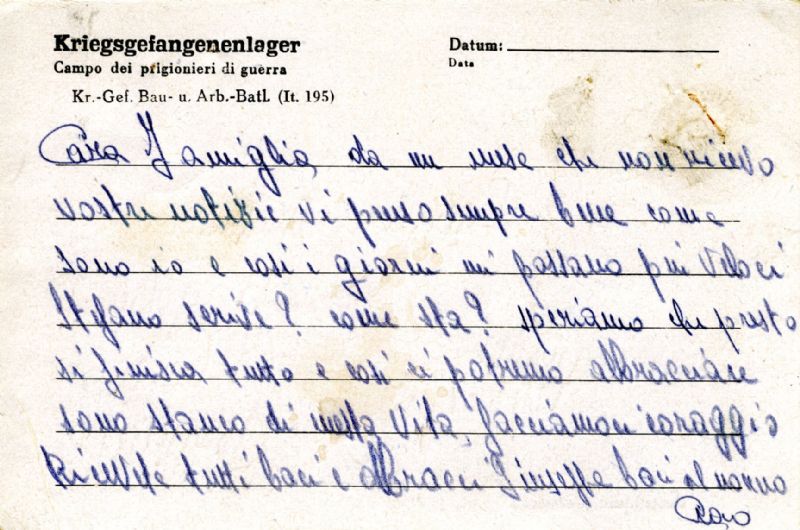 Kriegsgefangenenlager
Campo dei prigionieri di guerra
Kr.-Gef. Bau- u. Arb.-Batl. (It. 195)
Datum:
Data
Cara Famiglia, da un mese che non ricevo
vostre notizie vi penso sempre bene come
sono io e così i giorni mi passano più veloci
Stefano scrive? come sta? speriamo che presto
si finisca tutto e così ci potremo abbracciare
sono stanco di vita, facciamoci coraggio
Ricevete tutti baci e abbracci Giuseppe baci al nonno
Caro